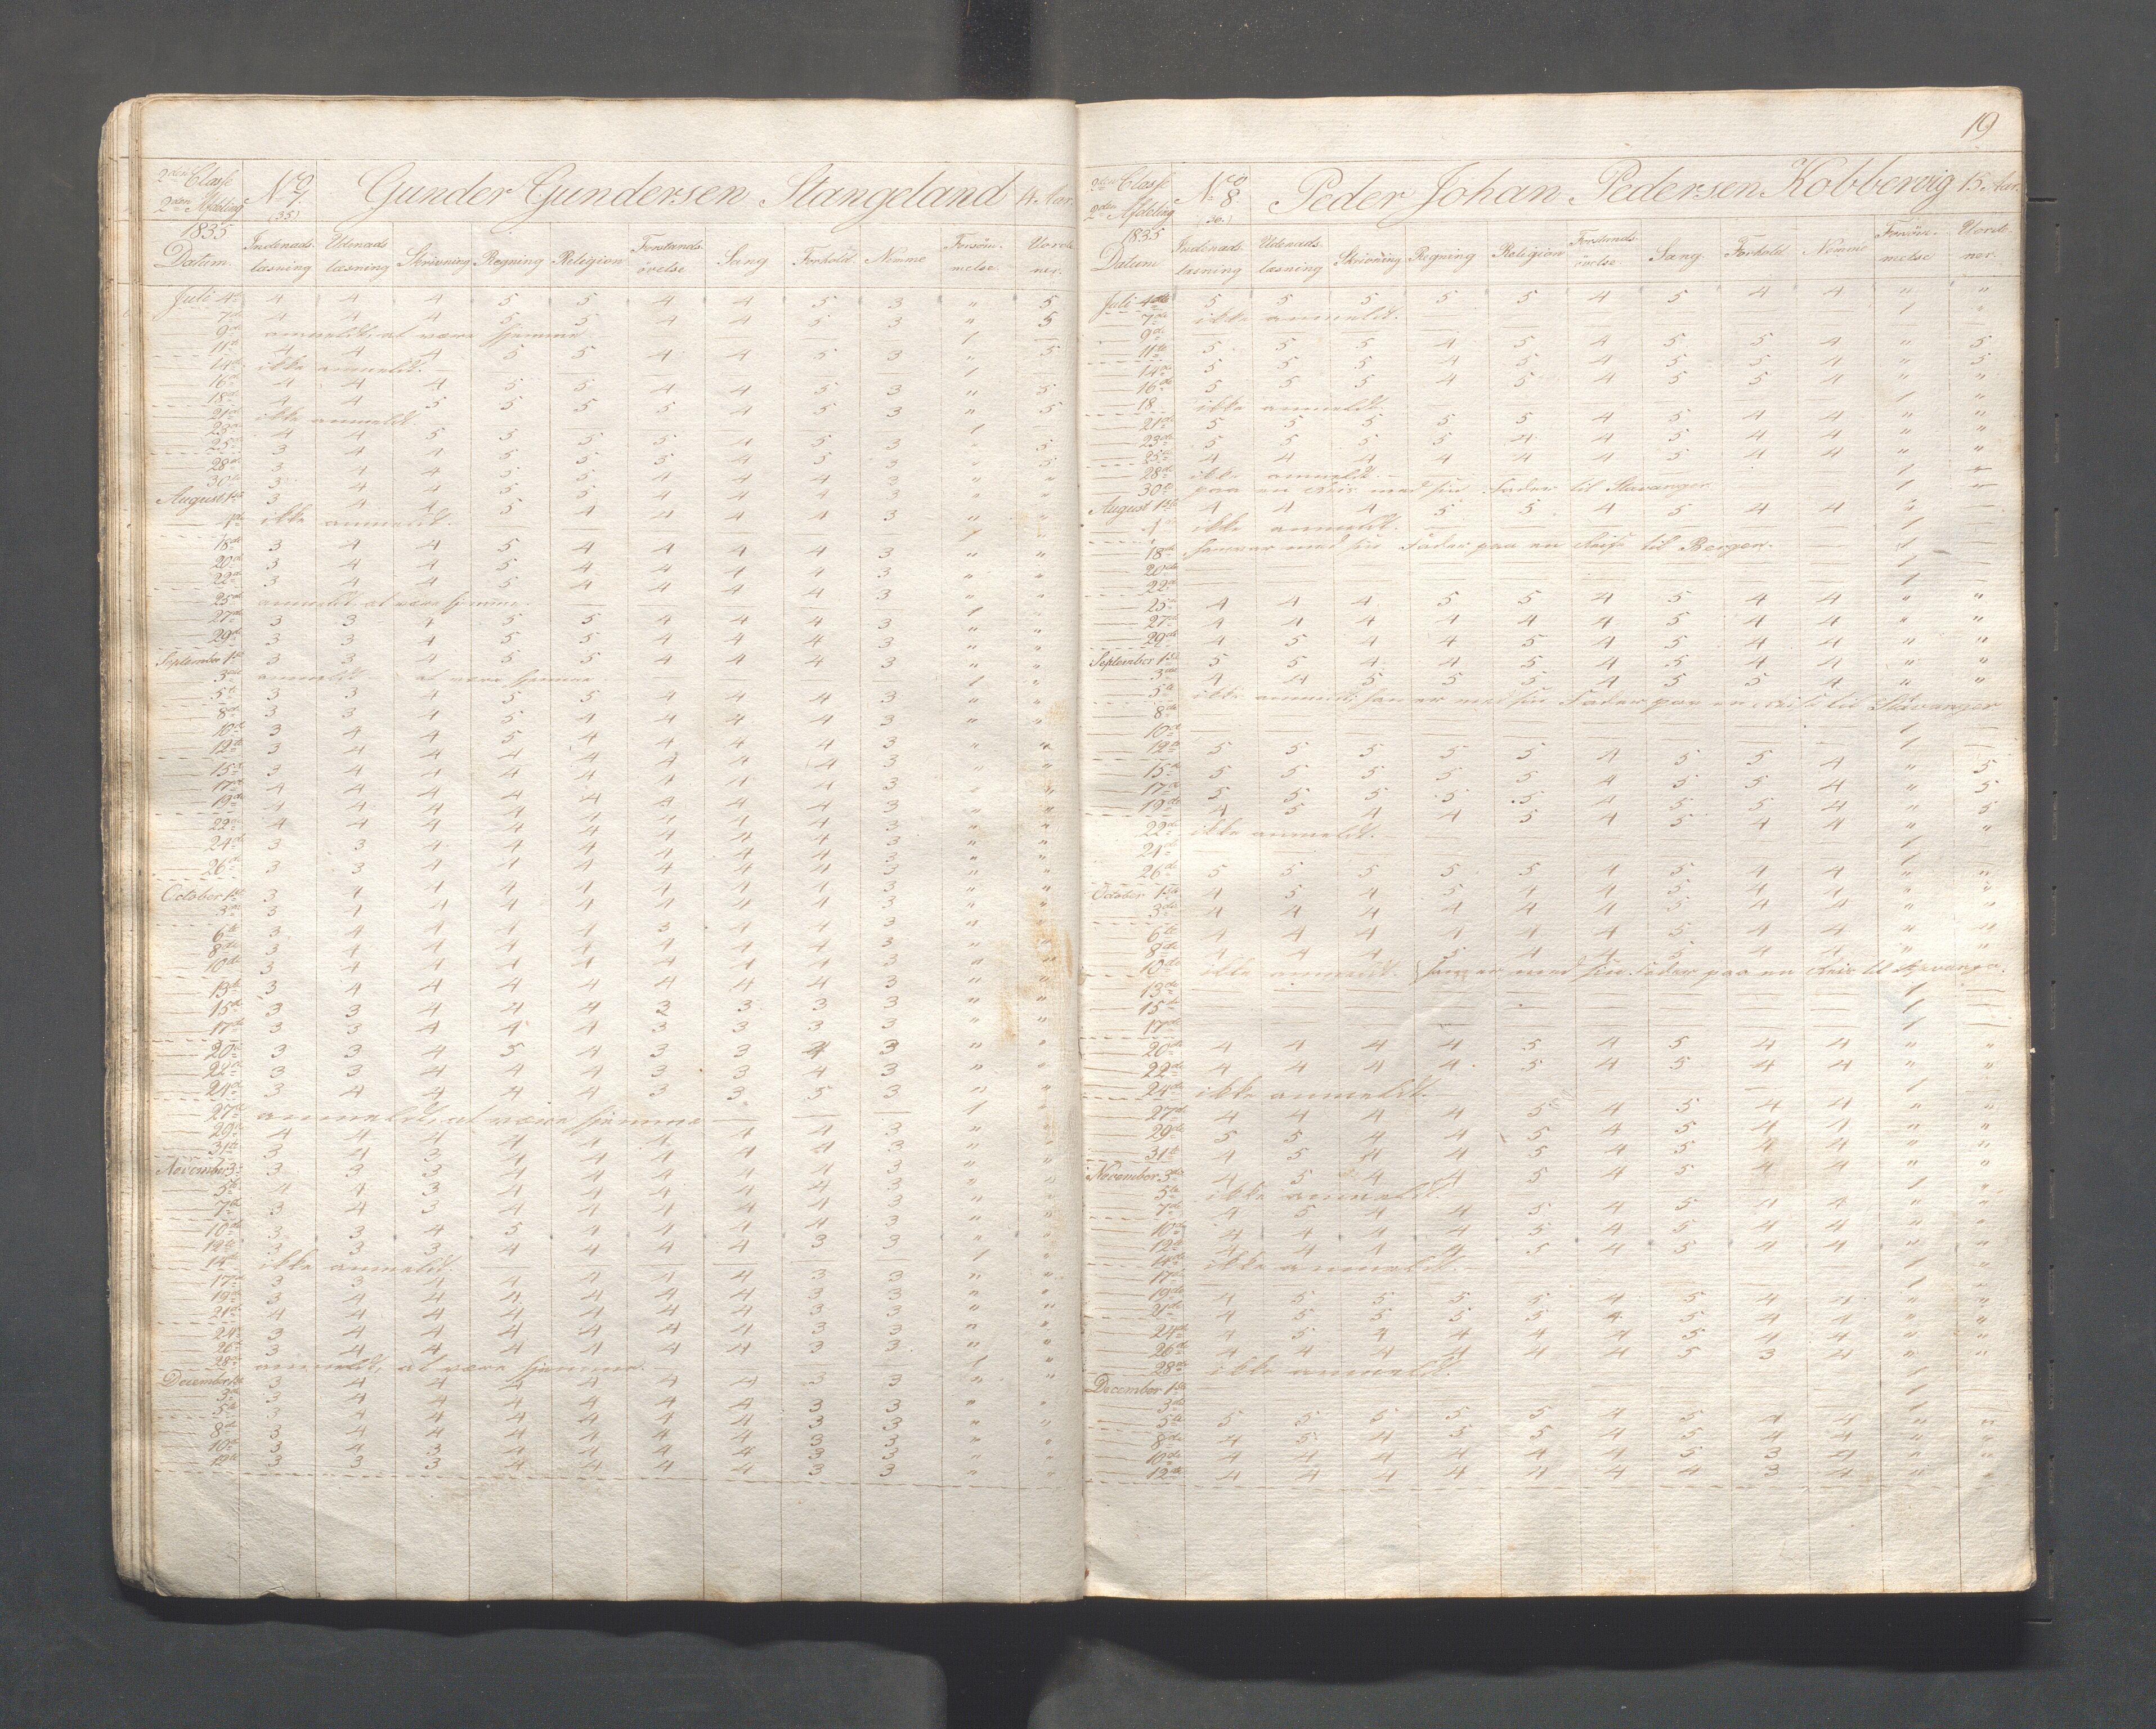 2den Classe
2den Afdeling
No 7.
(35.)
Gunder Gundersen Stangeland
14 Aar.
1835
Datum.
Indenads-læsning
Udenads læsning
Skrivning
Regning
Religion
Forstands-øvelse
Sang
Forhold.
Nemme
Forsøm-melse.
Juli 4de 4 4 4 5 5 4 4 5 3 " 5
7de 4 4 4 5 5 4 4 5 3 " 5
9de anmeldt, at være hjemme 1
11te 4 4 4 5 5 4 4 5 3 " 5
14de ikke anmeldt. 1
16de 4 4 4 5 5 4 4 5 3 " 5
18de 4 4 5 5 5 5 4 5 3 " 5
21de ikke anmeldt 1
23de 4 4 5 5 5 5 4 5 3 " 5
25de 3 4 4 5 5 5 4 5 3 " 5
28de 3 4 4 5 5 4 4 4 3 " "
30te 3 4 4 5 5 4 4 4 3 " "
August 1ste 3 4 4 5 4 4 4 4 3 " "
4de ikke anmeldt. 1
18de 3 4 4 5 4 4 4 4 3 " "
20de 3 4 4 5 4 4 4 4 3 " "
22de 3 4 4 5 4 4 4 4 3 " "
25de anmeldt, at være hjemme 1
27de 3 3 4 5 5 4 4 4 3 " "
29de 3 3 4 5 5 4 4 4 3 " "
September 1ste 3 3 4 5 5 4 4 4 3 " "
3de anmeldt at være hjemme 1
5te 3 3 4 5 5 4 4 4 3 " "
8de 3 3 4 5 4 4 4 4 3 " "
10de 3 4 4 5 4 4 4 4 3 " "
12te 3 4 4 4 4 4 4 4 3 " "
15de 3 4 4 4 4 4 4 4 3 " "
17de 4 4 4 4 4 4 4 4 3 " "
19de 4 4 4 4 4 4 4 4 3 " "
22de 4 4 4 4 4 4 4 4 3 " "
24de 3 3 4 4 4 4 4 4 3 " "
26de 3 3 4 4 4 4 4 4 3 " "
October 1ste 3 4 4 4 4 4 4 4 3 " "
3die 3 4 4 4 4 4 4 4 3 " "
6te 3 4 4 4 4 3 4 4 3 " "
8de 3 4 4 4 4 4 4 4 3 " "
10de 3 4 4 4 4 4 4 4 3 " "
13de 3 4 4 4 4 4 4 4 3 " "
15de 3 3 4 4 4 3 3 3 3 " "
17de 3 3 4 4 4 3 3 3 3 " "
20de 3 3 4 5 4 3 3 4 3 " "
22de 3 3 4 4 4 3 3 4 3 " "
24de 3 4 4 4 4 3 3 5 3 " "
27de anmeldt, at være hjemme 1
29de 4 4 4 4 4 4 4 4 3 " "
31te 3 4 3 4 4 4 4 4 3 " "
November 3. 3 3 3 4 4 4 4 4 3 " "
5te 4 4 3 4 4 4 4 4 3 " "
7de 3 4 3 4 4 4 4 4 3 " "
10de 3 3 4 5 4 4 4 4 3 " "
12te 3 3 3 4 4 4 4 3 3 " "
14de ikke anmeldt. 1
17de 3 3 4 4 4 4 4 3 3 " "
19de 3 4 4 4 4 4 4 3 3 " "
21de 4 4 4 4 4 4 4 3 3 " "
24de 3 4 4 4 4 4 4 3 3 " "
26de 3 4 4 4 4 4 4 3 3 " "
28de anmeldt, at være hjemme. 1
December 1ste 3 4 4 4 4 4 4 3 3 " "
3de 3 4 4 4 4 4 4 3 3 " "
5te 3 4 4 4 4 4 4 3 3 " "
8de 3 4 4 4 4 4 4 3 3 " "
10de 3 4 3 4 4 4 4 3 3 " "
12te 3 3 3 4 4 4 4 3 3 " "
19
2den Classe
2den Afdeling
No 8
Peder Johan Pedersen Kobbervig
15 Aar.
1835
Datum
Indenads-læsning
Udenads-læsning
Skrivning
Regning
Religion
Forstands-øvelse.
Sang.
Forhold
Nemme
Forsøm-melse
Juli 4de 5 5 5 5 5 4 5 4 4 " "
7de ikke anmeldt. 1
9de
11te 5 5 5 4 5 4 5 5 4 " 5
14de 5 5 5 4 5 4 5 5 4 " 5
16de 5 5 5 4 5 4 5 5 4 " "
18 ikke anmeldt. 1
21de 5 5 5 5 5 4 5 4 4 " "
23de 5 5 5 5 4 4 5 4 4 " "
25de 4 4 4 4 4 4 5 4 4 " "
28de ikke anmeldt. 1
30te paa en Reis med sin Fader til Stavanger 1
August 1ste 4 4 4 5 5 4 5 4 4 "
4de ikke anmeldt. 1
18de han var med sin Fader paa en Reise til Bergen. 1
20de
22de 1
25de 4 4 4 5 5 4 5 4 4 " "
27de 4 4 4 4 4 4 5 4 4 " "
29de 4 5 4 4 5 4 5 4 4 " "
September 1ste 5 5 4 4 5 4 5 4 4 " "
3die 4 4 5 5 5 4 5 5 4 " "
5te ikke anmeldt; han er med sin Fader paa en Reise til Stavanger
8de
10de 1
12te 5 5 5 5 5 4 5 5 4 " 5
15de 5 5 5 5 5 4 5 5 4 " 5
17de 5 5 5 5 5 4 5 5 4 " 5
19de 4 5 4 4 5 4 5 4 4 " "
22de ikke anmeldt.
24de 1
26de 5 5 5 5 5 4 5 4 4 " "
October 1ste 4 5 4 5 4 4 5 4 4 " "
3de 4 4 4 4 4 4 5 4 4 " "
6te 4 4 4 4 4 4 5 4 4 " "
8de 4 4 4 5 4 4 5 4 4 " "
10de ikke anmeldt. han er med sin Fader paa en Reis til Stavanger.
13de 1
15te
17de 1
20de 4 4 4 4 5 4 5 4 4 " "
22de 4 4 4 4 5 4 5 4 4 " "
24de ikke anmeldt. 1
27de 4 4 4 4 5 4 5 4 4 " "
29de 5 5 4 4 5 4 5 4 4 " "
31te 4 5 4 4 5 4 5 4 4 " "
November 3de 4 5 4 4 5 4 5 4 4 " "
5te ikke anmeldt. 1
7de 4 5 4 4 5 4 5 4 4 " "
10de 4 4 4 4 5 4 5 4 4 " "
12te 4 4 4 4 5 4 5 4 4 " "
14de ikke anmeldt. 1
17de 1
19de 4 5 5 5 5 4 5 4 4 " "
21de 4 5 5 5 5 4 5 4 4 " "
24de 4 5 4 4 4 4 5 4 4 " "
26de 4 4 4 4 4 4 5 3 4 " "
28de ikke anmeldt. 1
December 1ste 1
3de 1
5te 5 5 5 5 5 4 5 4 4 " "
8de 4 5 4 5 5 4 5 4 4 " "
10de 4 4 4 4 4 4 5 3 4 " "
12te 4 4 4 4 4 4 4 3 4 " "